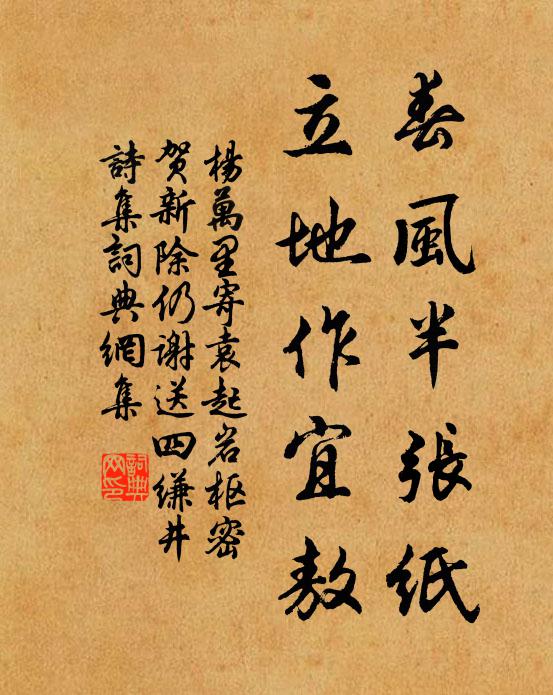 春風半張紙
立地作宜敖
楊萬里寄袁起岩枢密
贺新除仍謝送四縑井
詩集詞典網集
詞典
网印